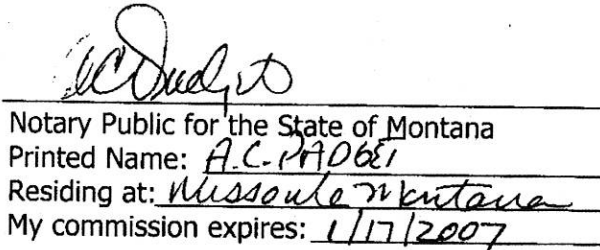 Notary Public for the State of Montana
Printed Name: A.C. PADGET
Residing at: Missoula Montana
My commission expires: 1/17/2007